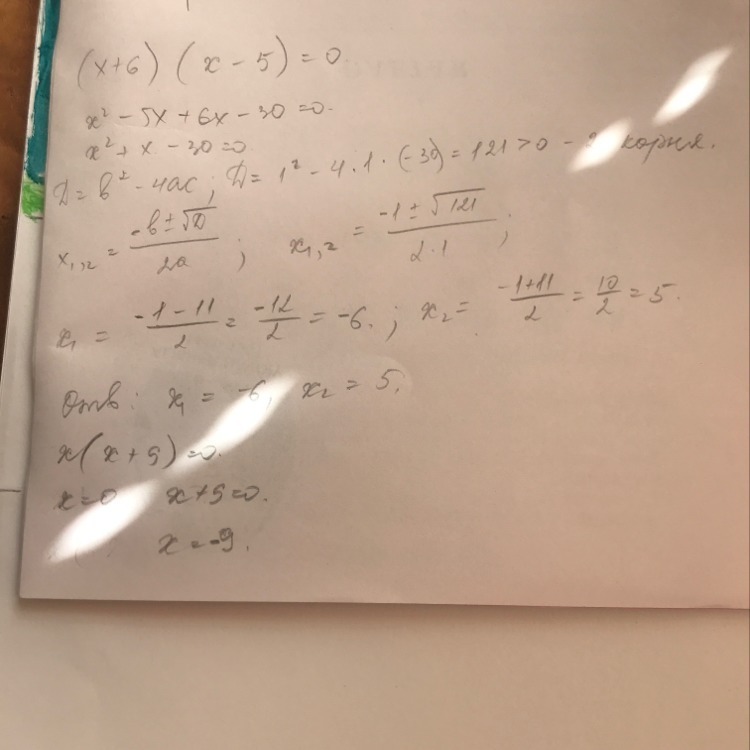 (x+6) (x-5) = 0
x² - 5x + 6x - 30 = 0.
x² + x - 30 = 0
D = b² - 4ac; D = 1² - 4·1·(-30) = 121 > 0 - корня.
x₁,₂ = (-b ± √D)/2a; x₁,₂ = (-1 ± √121)/2·1;
x₁ = (-1 - 11)/2 = -12/2 = -6.; x₂ = (-1+11)/2 = 10/2 = 5.
Отв: x₁ = -6, x₂ = 5.
x(x+9) = 0.
x = 0 x+9 = 0.
x = -9.